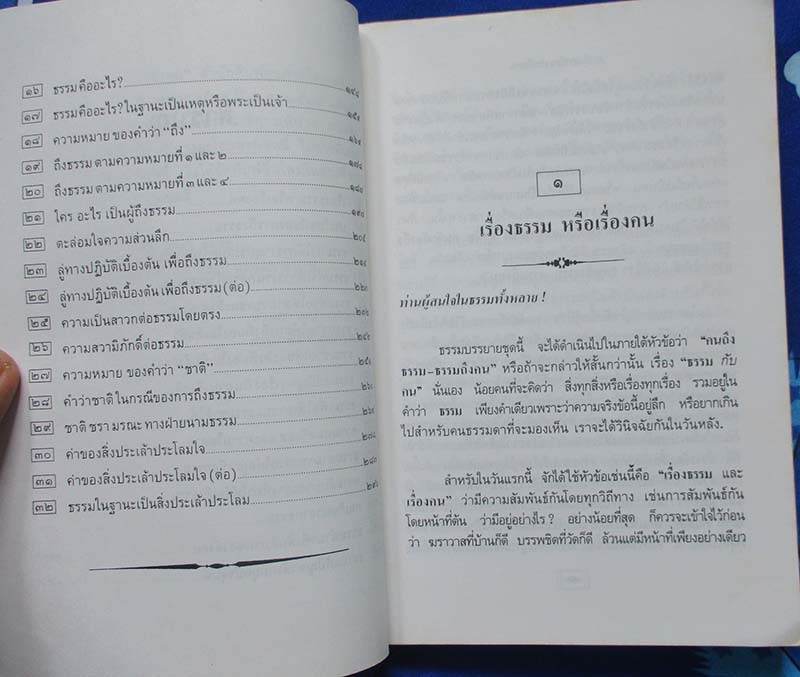 ๑๖ ธรรมคืออะไร? ๑๔๘
๑๗ ธรรมคืออะไร? ในฐานะเป็นเหตุหรือพระเป็นเจ้า ๑๕๕
๑๘ ความหมาย ของคำว่า “ถึง” ๑๖๔
๑๙ ถึงธรรม ตามความหมายที่ ๑ และ ๒ ๑๗๘
๒๐ ถึงธรรม ตามความหมายที่ ๓ และ ๔
๒๑ ใคร อะไร เป็นผู้ถึงธรรม
๒๒ ตะล่อมใจความส่วนลึก ๒๐๕
๒๓ ลู่ทางปฏิบัติเบื้องต้น เพื่อถึงธรรม
๒๔ ลู่ทางปฏิบัติเบื้องต้น เพื่อถึงธรรม (ต่อ)
๒๕ ความเป็นสาวกต่อธรรมโดยตรง
๒๖ ความสวามิภักดิ์ต่อธรรม
๒๗ ความหมาย ของคำว่า “ชาติ”
๒๘ คำว่าชาติ ในกรณีของการถึงธรรม
๒๙ ชาติ ชรา มรณะ ทางฝ่ายนามธรรม
๓๐ ค่าของสิ่งประเล้าประโลมใจ
๓๑ ค่าของสิ่งประเล้าประโลมใจ (ต่อ)
๓๒ ธรรมในฐานะเป็นสิ่งประเล้าประโลม
๑
เรื่องธรรม หรือเรื่องคน
ท่านผู้สนใจในธรรมทั้งหลาย !
ธรรมบรรยายชุดนี้ จะได้ดำเนินไปในภายใต้หัวข้อว่า “คนถึง
ธรรม-ธรรมถึงคน” หรือถ้าจะกล่าวให้สั้นกว่านั้น เรื่อง “ธรรม กับ
คน” นั่นเอง น้อยคนที่จะคิดว่า สิ่งทุกสิ่งหรือเรื่องทุกเรื่อง รวมอยู่ใน
คำว่า ธรรม เพียงคำเดียวเพราะว่าความจริงข้อนี้อยู่ลึก หรือยากเกิน
ไปสำหรับคนธรรมดาที่จะมองเห็น เราจะได้วินิจฉัยกันในวันหลัง.
สำหรับในวันแรกนี้ จักได้ใช้หัวข้อเช่นนี้คือ “เรื่องธรรม และ
เรื่องคน” ว่ามีความสัมพันธ์กันโดยทุกวิถีทาง เช่นการสัมพันธ์กัน
โดยหน้าที่ต้น ว่ามีอยู่อย่างไร ? อย่างน้อยที่สุด ก็ควรจะเข้าใจไว้ก่อน
ว่า ฆราวาสที่บ้านก็ดี บรรพชิตที่วัดก็ดี ล้วนแต่มีหน้าที่เพียงอย่างเดียว